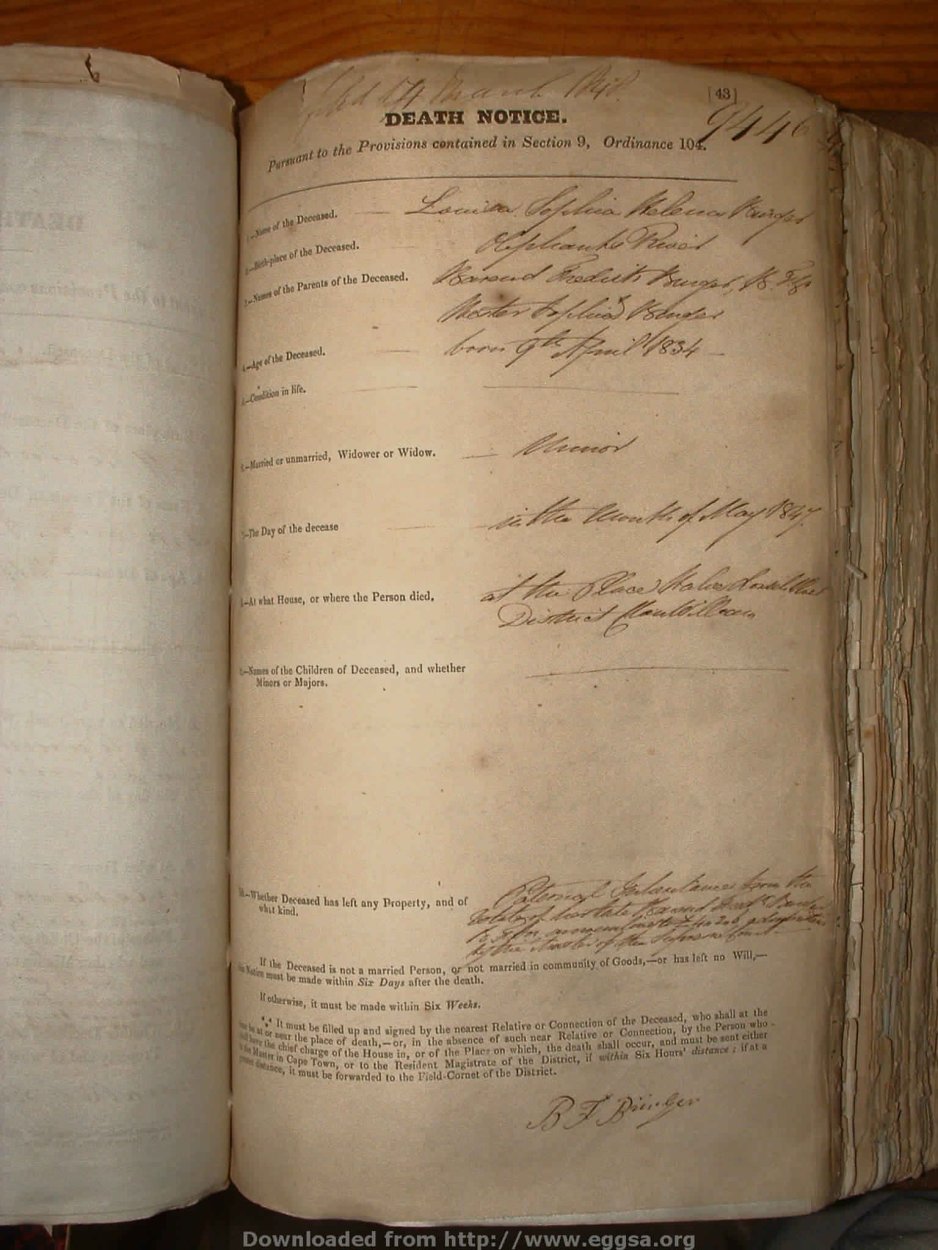 [43]
DEATH NOTICE.
9446
Pursuant to the Provisions contained in Section 9, Ordinance 104.
1.—Name of the Deceased. Louisa Sophia Helena Burger
2.—Birth-place of the Deceased. Olifants River
3.—Names of the Parents of the Deceased. Barend Burger,
Hester Sophia Burger
4.—Age of the Deceased. born 9th April 1834
5.—Condition in life.
6.—Married or unmarried, Widower or Widow. Minor
7.—The Day of the decease in the Month of May 1847.
8.—At what House, or where the Person died, at the Place
District Clanwilliam
9.—Names of the Children of Deceased, and whether
Minors or Majors.
10.—Whether Deceased has left any Property, and of
what kind. Paternal Inheritance from the
by the Master of the Supreme Court
If the Deceased is not a married Person, or not married in community of Goods,—or has left no Will,—
this Notice must be made within Six Days after the death.
If otherwise, it must be made within Six Weeks.
*** It must be filled up and signed by the nearest Relative or Connection of the Deceased, who shall at the
time be at or near the place of death,—or, in the absence of such near Relative or Connection, by the Person who
shall have the chief charge of the House in, or of the Place on which, the death shall occur, and must be sent either
to the Master in Cape Town, or to the Resident Magistrate of the District, if within Six Hours' distance; if at a
greater distance, it must be forwarded to the Field-Cornet of the District.
B F Burger
Downloaded from http://www.eggsa.org